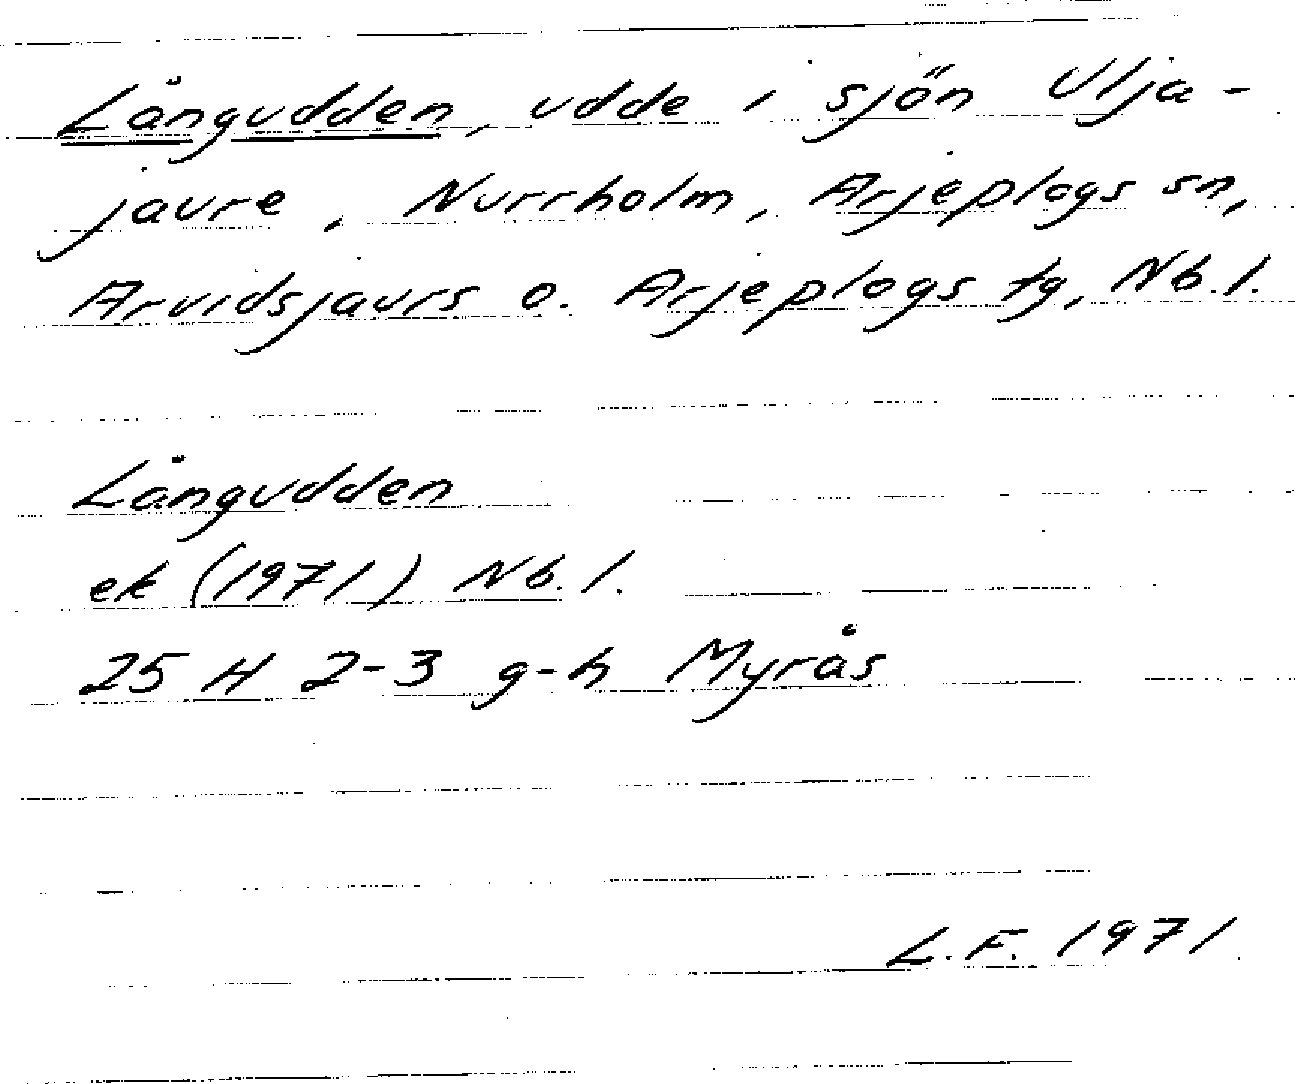 Långudden, udde i sjön Ulja-
jaure, Nurrholm, Arjeplogs sn,
Arvidsjaurs o. Arjeplogs tg, Nb. l.
Långudden
ek (1971) Nb. l.
25 H 2-3 g-h Myrås
L. F. 1971.